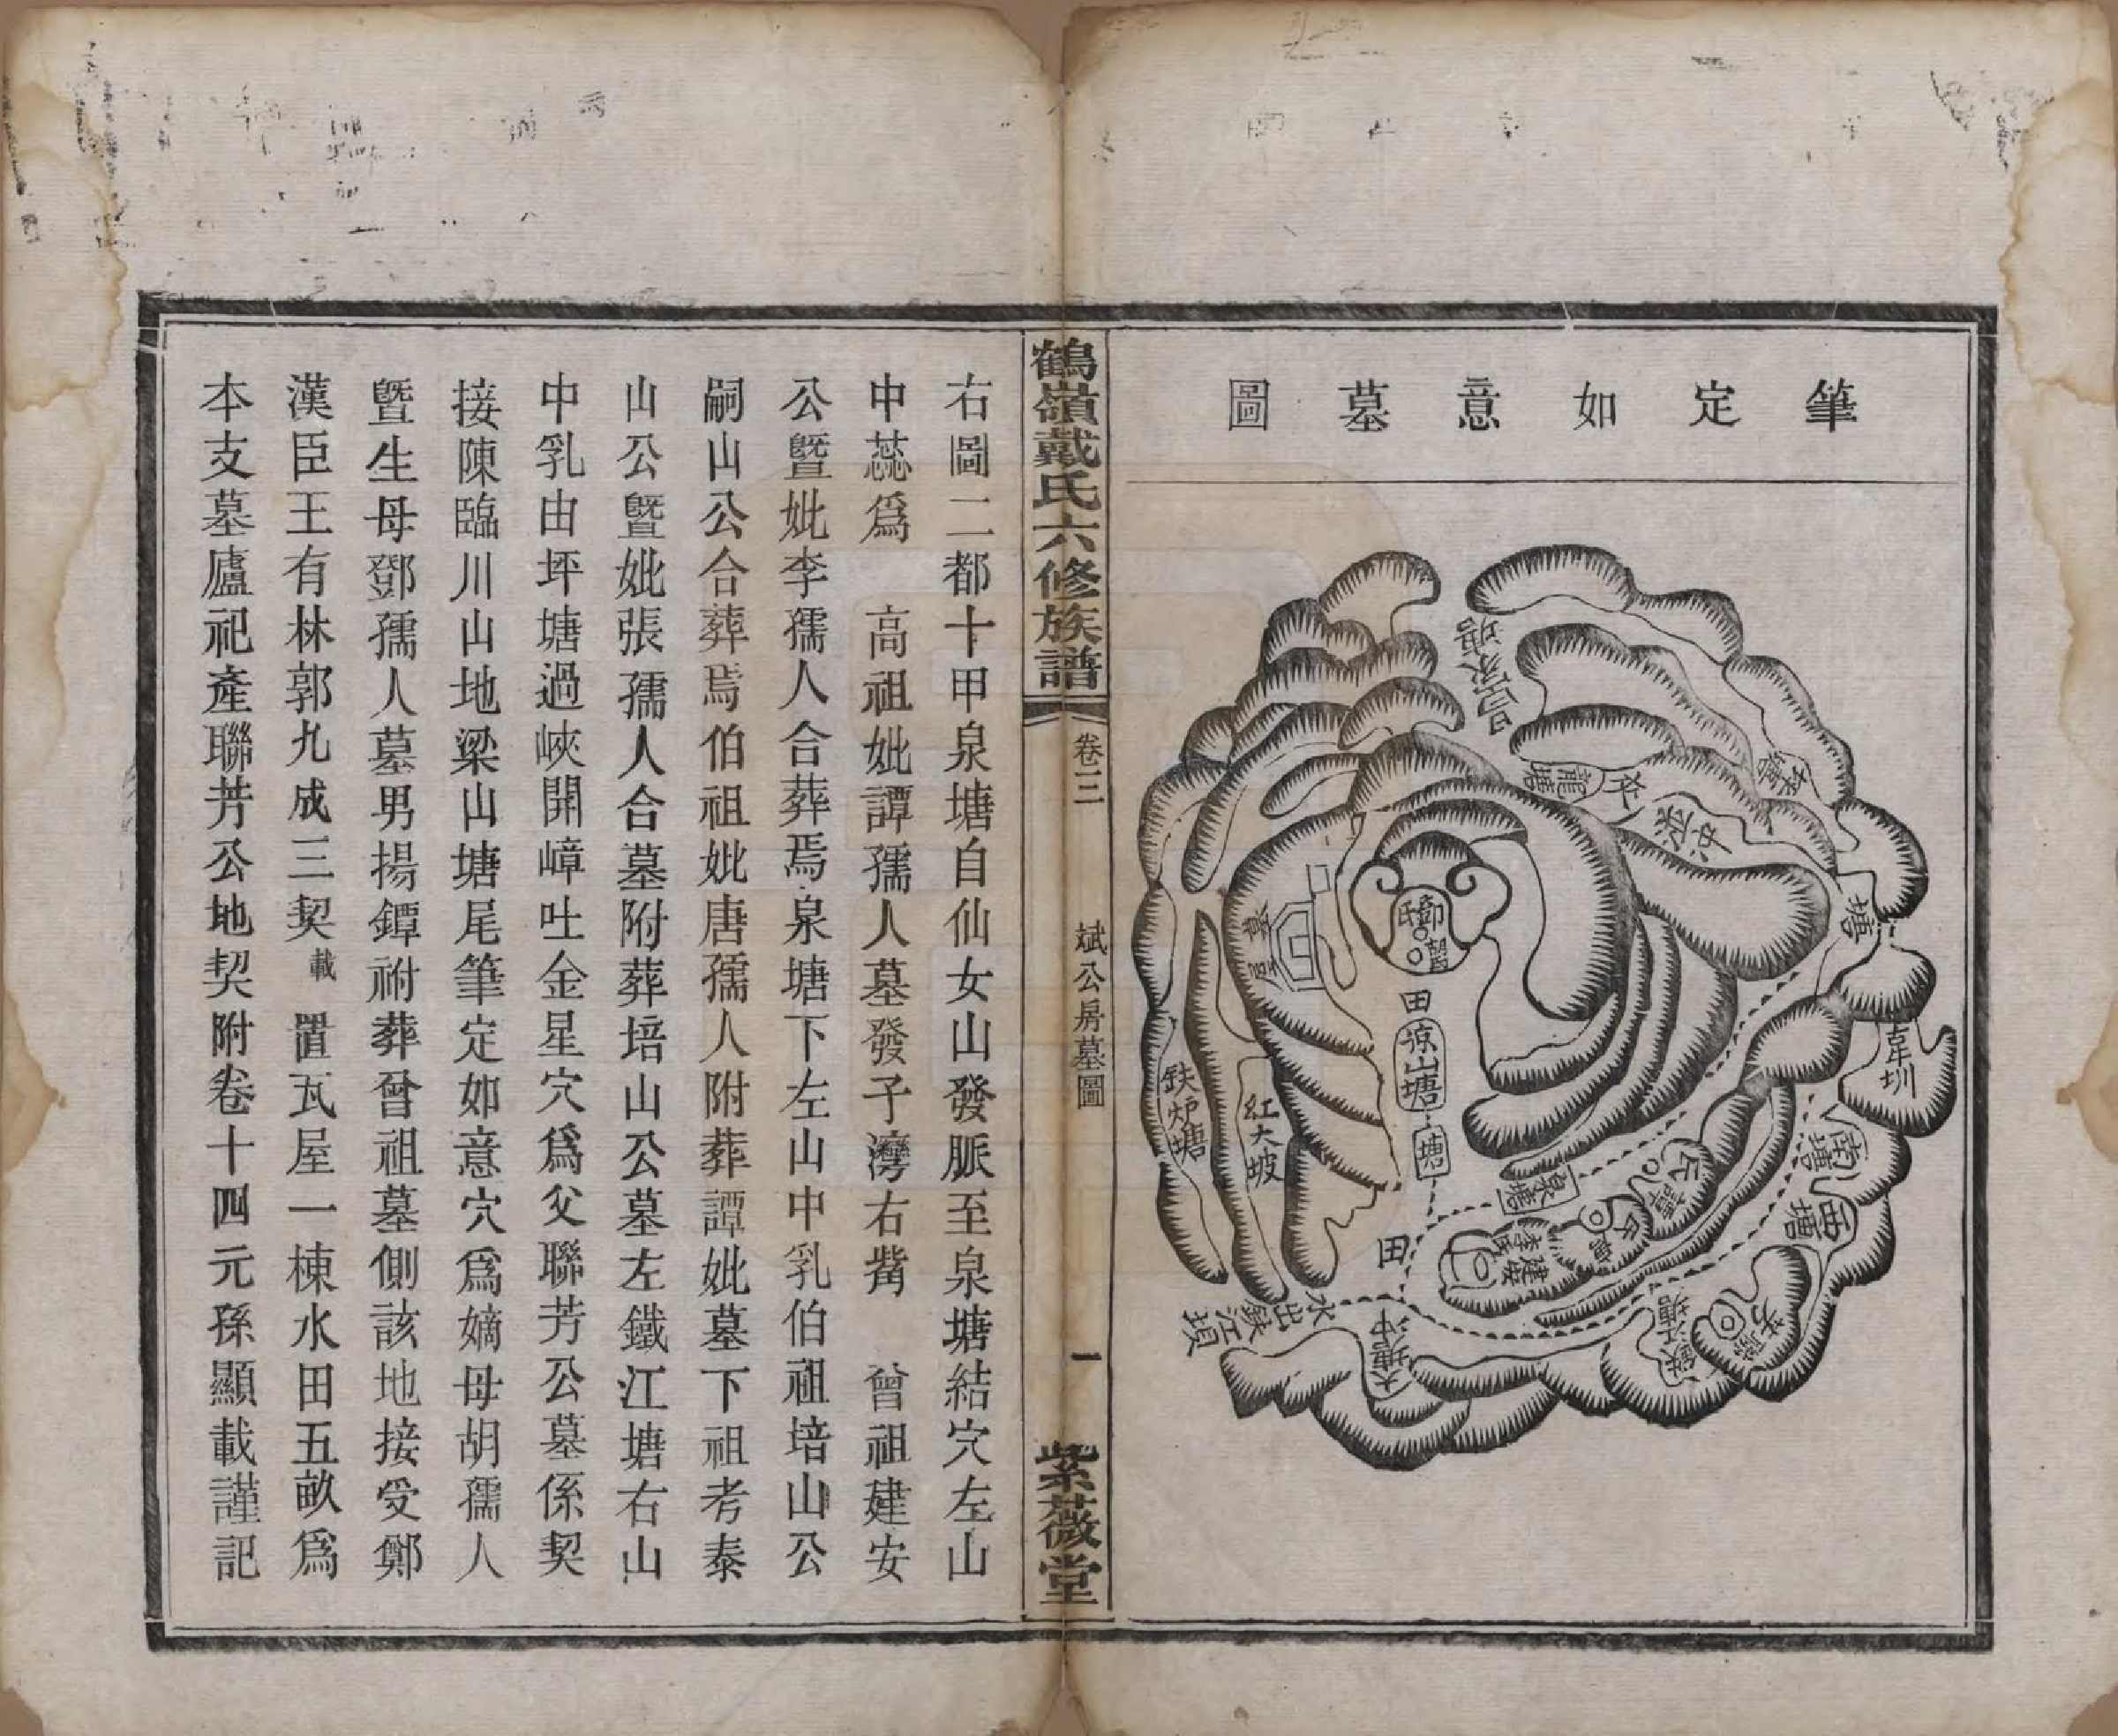 筆定如意墓圖
皇家塘
龍塘
塘
韋圳
南塘
西塘
鄧氏
田
涼山塘
塘
泉塘
紅大坡
鉄炉塘
田
建安
李氏
譚氏
聯芳
鉄江塘
大塘冲
水出鉄江垻
鶴嶺戴氏六修族譜
卷三
斌公房墓圖
一
紫薇堂
右圖二都十甲泉塘自仙女山發脈至泉塘結穴左山
中蕊爲 高祖妣譚孺人墓發子灣右觜 曾祖建安
公暨妣李孺人合葬焉泉塘下左山中乳伯祖培山公
嗣山公合葬焉伯祖妣唐孺人附葬譚妣墓下祖考泰
山公暨妣張孺人合墓附葬培山公墓左鐵江塘右山
中乳由坪塘過峽開嶂吐金星穴爲父聯芳公墓係契
接陳臨川山地梁山塘尾筆定如意穴爲嫡母胡孺人
暨生母鄧孺人墓男揚鐔祔葬曾祖墓側該地接受鄭
漢臣王有林郭九成三契載 置瓦屋一棟水田五畝爲
本支墓廬祀產聯芳公地契附卷十四元孫顯載謹記